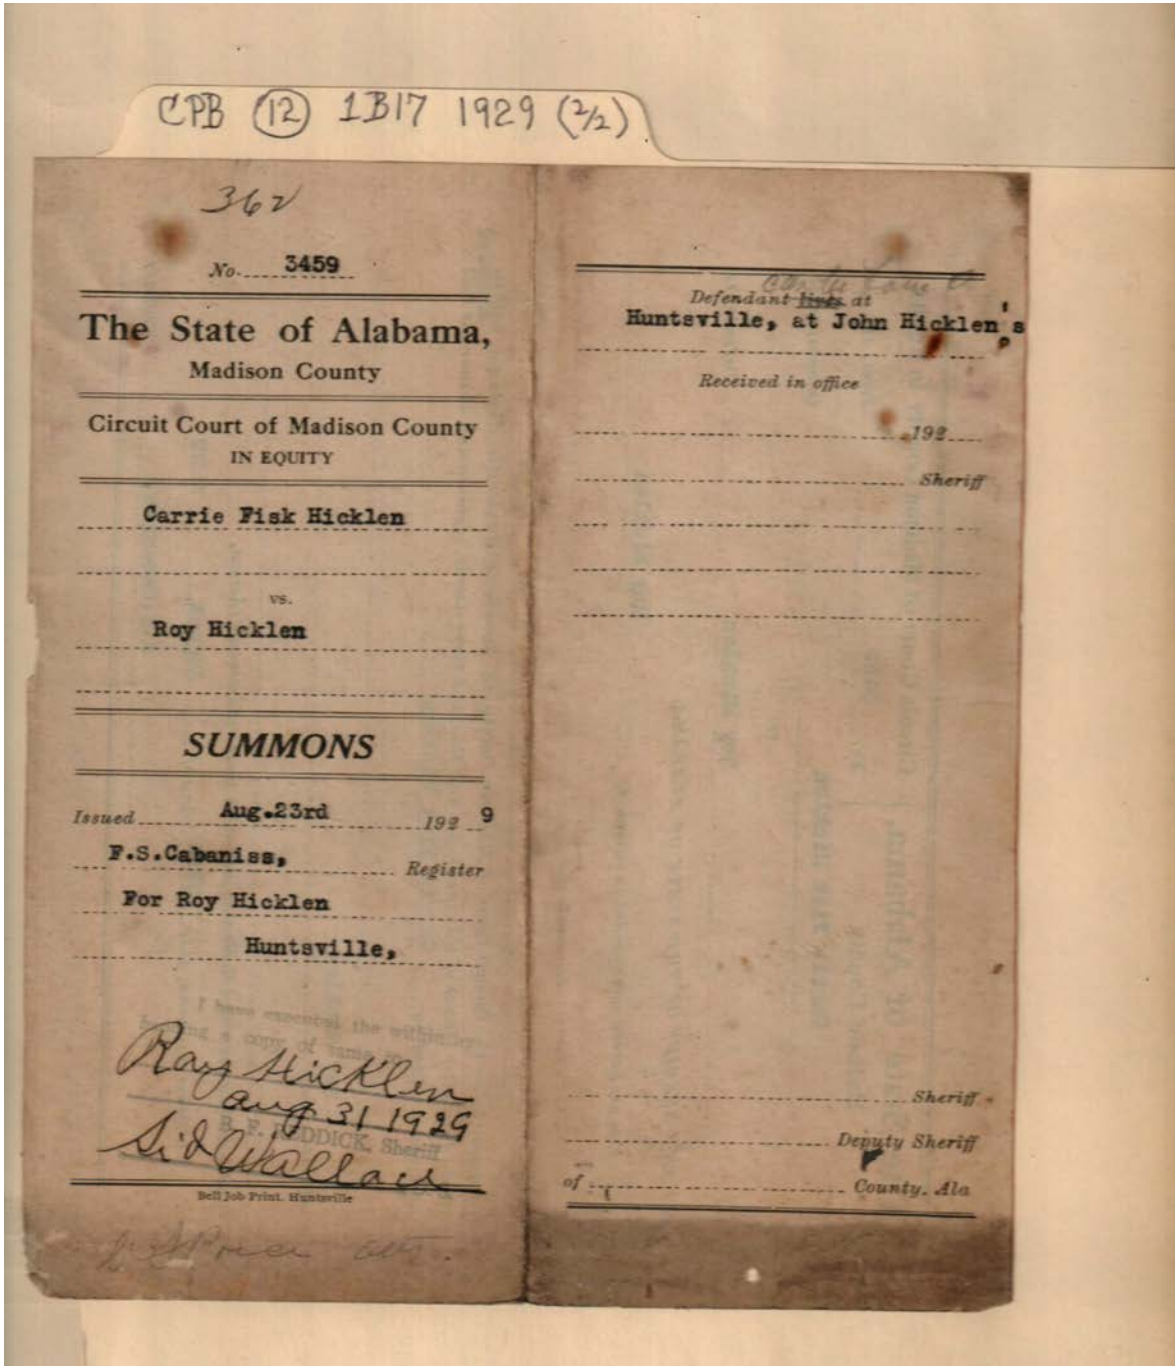 CPB (12) 1B17 1929 (2/2)
362
No. 3459
The State of Alabama,
Madison County
Circuit Court of Madison County
IN EQUITY
Carrie Fisk Hicklen
vs.
Roy Hicklen
SUMMONS
Issued Aug.23rd 192 9
F.S.Cabaniss, Register
For Roy Hicklen
Huntsville,
I have executed the within by
a copy of same
Roy Hicklen
Aug 31 1929
B. F. REDDICK, Sheriff
Sid Wallace
Bell Job Print. Huntsville
Price atty.
can be found at
Defendant lives at
Huntsville, at John Hicklen's
Received in office
192
Sheriff
Sheriff
Deputy Sheriff
of County, Ala